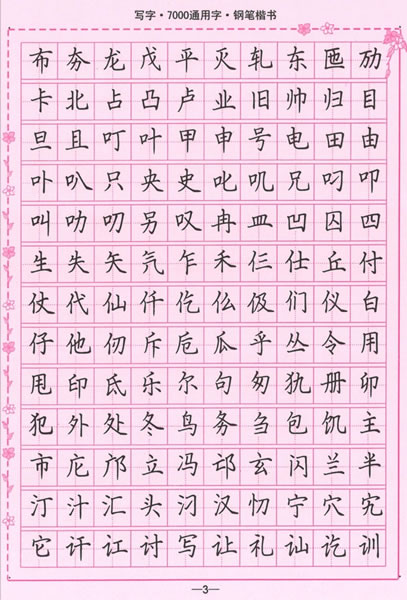 写字·7000通用字·钢笔楷书
布夯龙戊平灭轧东匜劢
卡北占凸卢业旧帅归目
旦且叮叶甲申号电田由
卟叭只央史叱叽兄叼叩
叫叻叨另叹冉皿凹囚四
生失矢氕乍禾仨仕丘付
仗代仙仟仡仫伋们仪白
仔他仞斥卮瓜乎丛令用
甩印氐乐尔句匆犰册卯
犯外处冬鸟务刍包饥主
市庀邝立冯邙玄闪兰半
汀汁汇头汈汉忉宁穴宄
它讦讧讨写让礼讪讫训
—3—